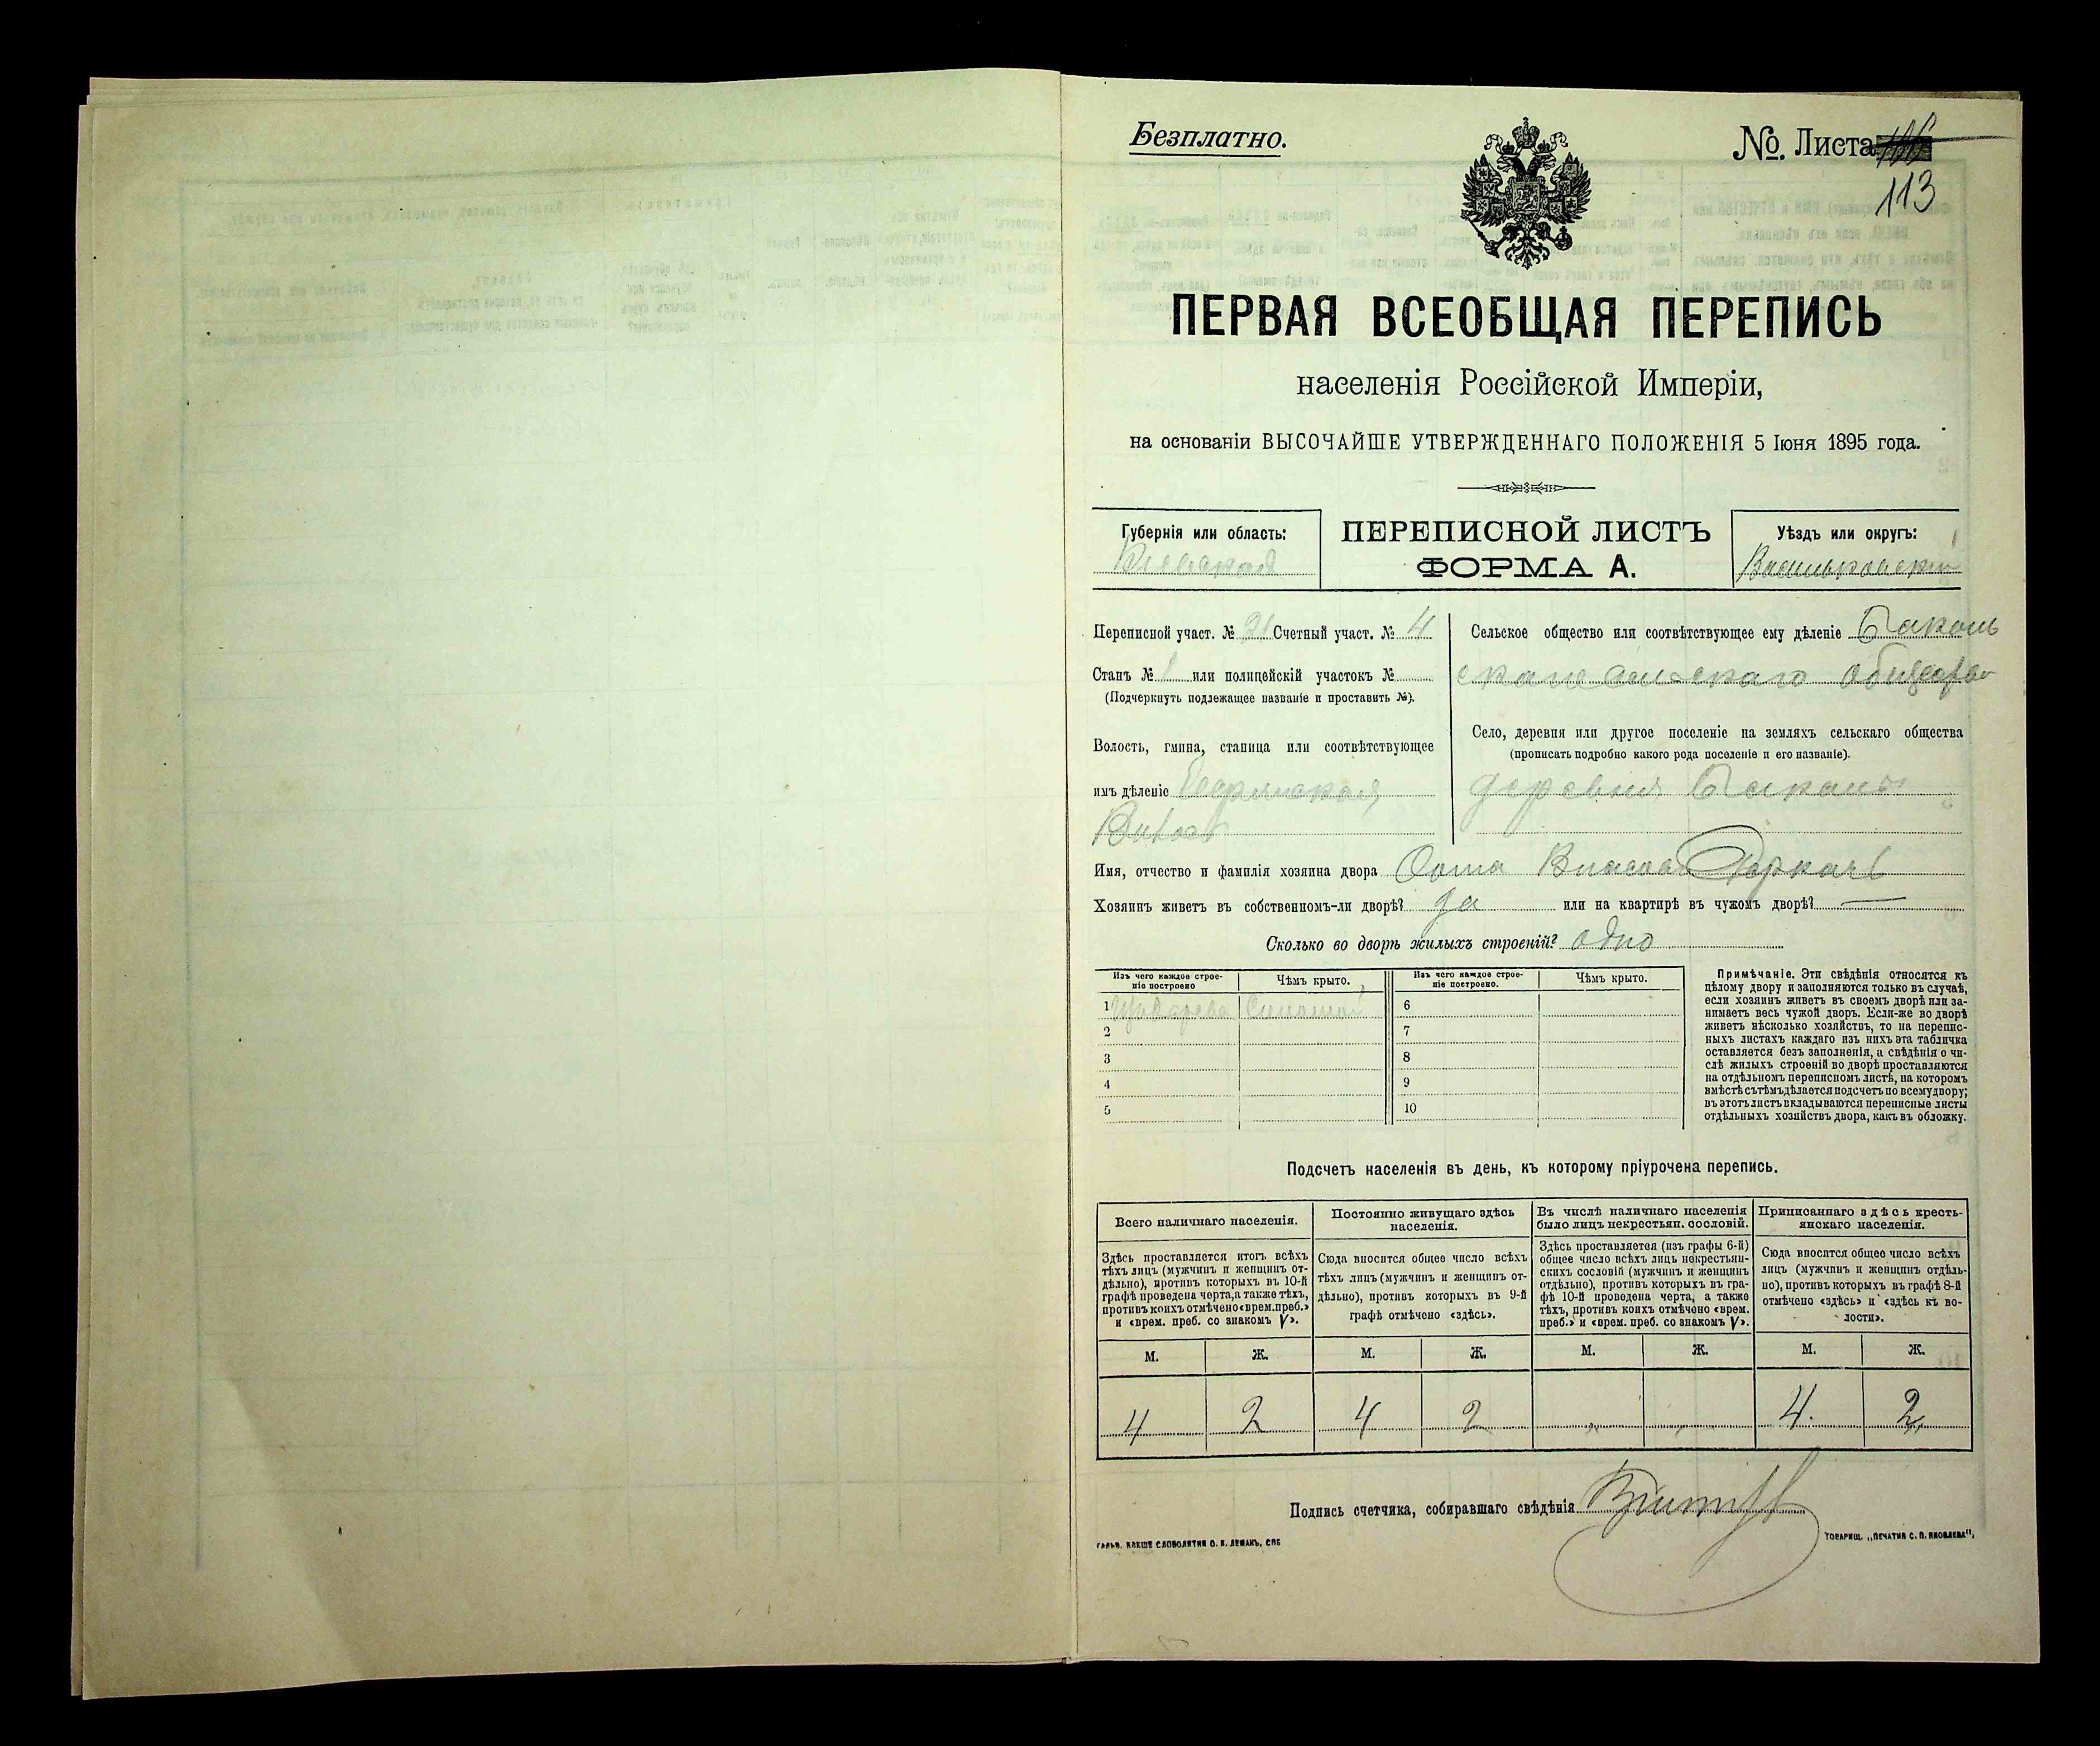 Безплатно.
№. Листа
113
ПЕРВАЯ ВСЕОБЩАЯ ПЕРЕПИСЬ
населенія Россійской Имперіи,
на основаніи ВЫСОЧАЙШЕ УТВЕРЖДЕННАГО ПОЛОЖЕНІЯ 5 Іюня 1895 года.
Губернія или область:
Кіевская
ПЕРЕПИСНОЙ ЛИСТЪ
ФОРМА А.
Уѣздъ или округъ:
Васильковскій
Переписной участ. № 21 Счетный участ. № 4
Станъ № 1 или полицейскій участокъ №
(Подчеркнуть подлежащее названіе и проставить №).
Волость, гмина, станица или соотвѣтствующее
имъ дѣленіе
Сельское общество или соотвѣтствующее ему дѣленіе
общества
Село, деревня или другое поселеніе на земляхъ сельскаго общества
(прописать подробно какого рода поселеніе и его названіе).
деревня
Имя, отчество и фамилія хозяина двора Фома Власов Деркачъ
Хозяинъ живетъ въ собственномъ-ли дворѣ? да или на квартирѣ въ чужомъ дворѣ? —
Сколько во дворѣ жилыхъ строеній? одно
Изъ чего каждое строе-
ніе построено
Чѣмъ крыто.
Изъ чего каждое строе-
ніе построено.
Чѣмъ крыто.
1 Изъ дерева Соломой
2
3
4
5
6
7
8
9
10
Примѣчаніе. Эти свѣдѣнія относятся къ
цѣлому двору и заполняются только въ случаѣ,
если хозяинъ живетъ въ своемъ дворѣ или за-
нимаетъ весь чужой дворъ. Если-же во дворѣ
живетъ нѣсколько хозяйствъ, то на перепис-
ныхъ листахъ каждаго изъ нихъ эта табличка
оставляется безъ заполненія, а свѣдѣнія о чи-
слѣ жилыхъ строеній во дворѣ проставляются
на отдѣльномъ переписномъ листѣ, на которомъ
вмѣстѣ съ тѣмъ дѣлается подсчетъ по всему двору;
въ этотъ листъ вкладываются переписные листы
отдѣльныхъ хозяйствъ двора, какъ въ обложку.
Подсчетъ населенія въ день, къ которому пріурочена перепись.
Всего наличнаго населенія.
Постоянно живущаго здѣсь
населенія.
Въ числѣ наличнаго населенія
было лицъ некрестьян. сословій.
Приписаннаго здѣсь кресть-
янскаго населенія.
Здѣсь проставляется итогъ всѣхъ
тѣхъ лицъ (мужчинъ и женщинъ от-
дѣльно), противъ которыхъ въ 10-й
графѣ проведена черта, а также тѣхъ,
противъ коихъ отмѣчено «врем. преб.»
и «врем. преб. со знакомъ V».
Сюда вносится общее число всѣхъ
тѣхъ лицъ (мужчинъ и женщинъ от-
дѣльно), противъ которыхъ въ 9-й
графѣ отмѣчено «здѣсь».
Здѣсь проставляется (изъ графы 6-й)
общее число всѣхъ лицъ некрестьян-
скихъ сословій (мужчинъ и женщинъ
отдѣльно), противъ которыхъ въ гра-
фѣ 10-й проведена черта, а также
тѣхъ, противъ коихъ отмѣчено «врем.
преб.» и «врем. преб. со знакомъ V».
Сюда вносится общее число всѣхъ
лицъ (мужчинъ и женщинъ отдѣль-
но), противъ которыхъ въ графѣ 8-й
отмѣчено «здѣсь» и «здѣсь къ во-
лости».
М. Ж. М. Ж. М. Ж. М. Ж.
4 2 4 2 „ „ 4. 2
Подпись счетчика, собиравшаго свѣдѣнія
ТОВАРИЩ. „ПЕЧАТНЯ С. П. ЯКОВЛЕВА",